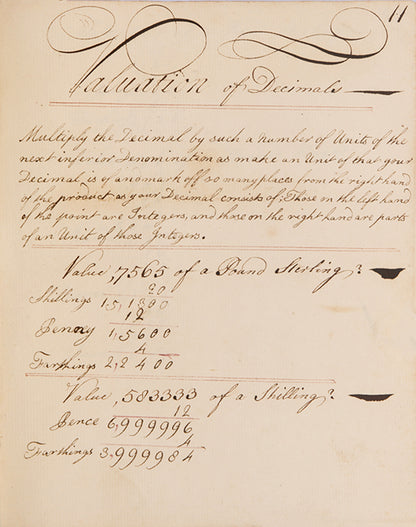 11
Valuation of Decimals
Multiply the Decimal by such a number of Units of the
next inferior Denomination as make an Unit of that your
Decimal is of and mark off so many places from the right hand
of the product as your Decimal consists of; Those on the left hand
of the point are Integers, and those on the right hand are parts
of an Unit of those Integers.
Value ,7565 of a Pound Sterling?
20
Shillings 15,1300
12
Penny 1,5600
4
Farthings 2,2400
Value ,583333 of a Shilling?
12
Pence 6,999996
4
Farthings 3,999984